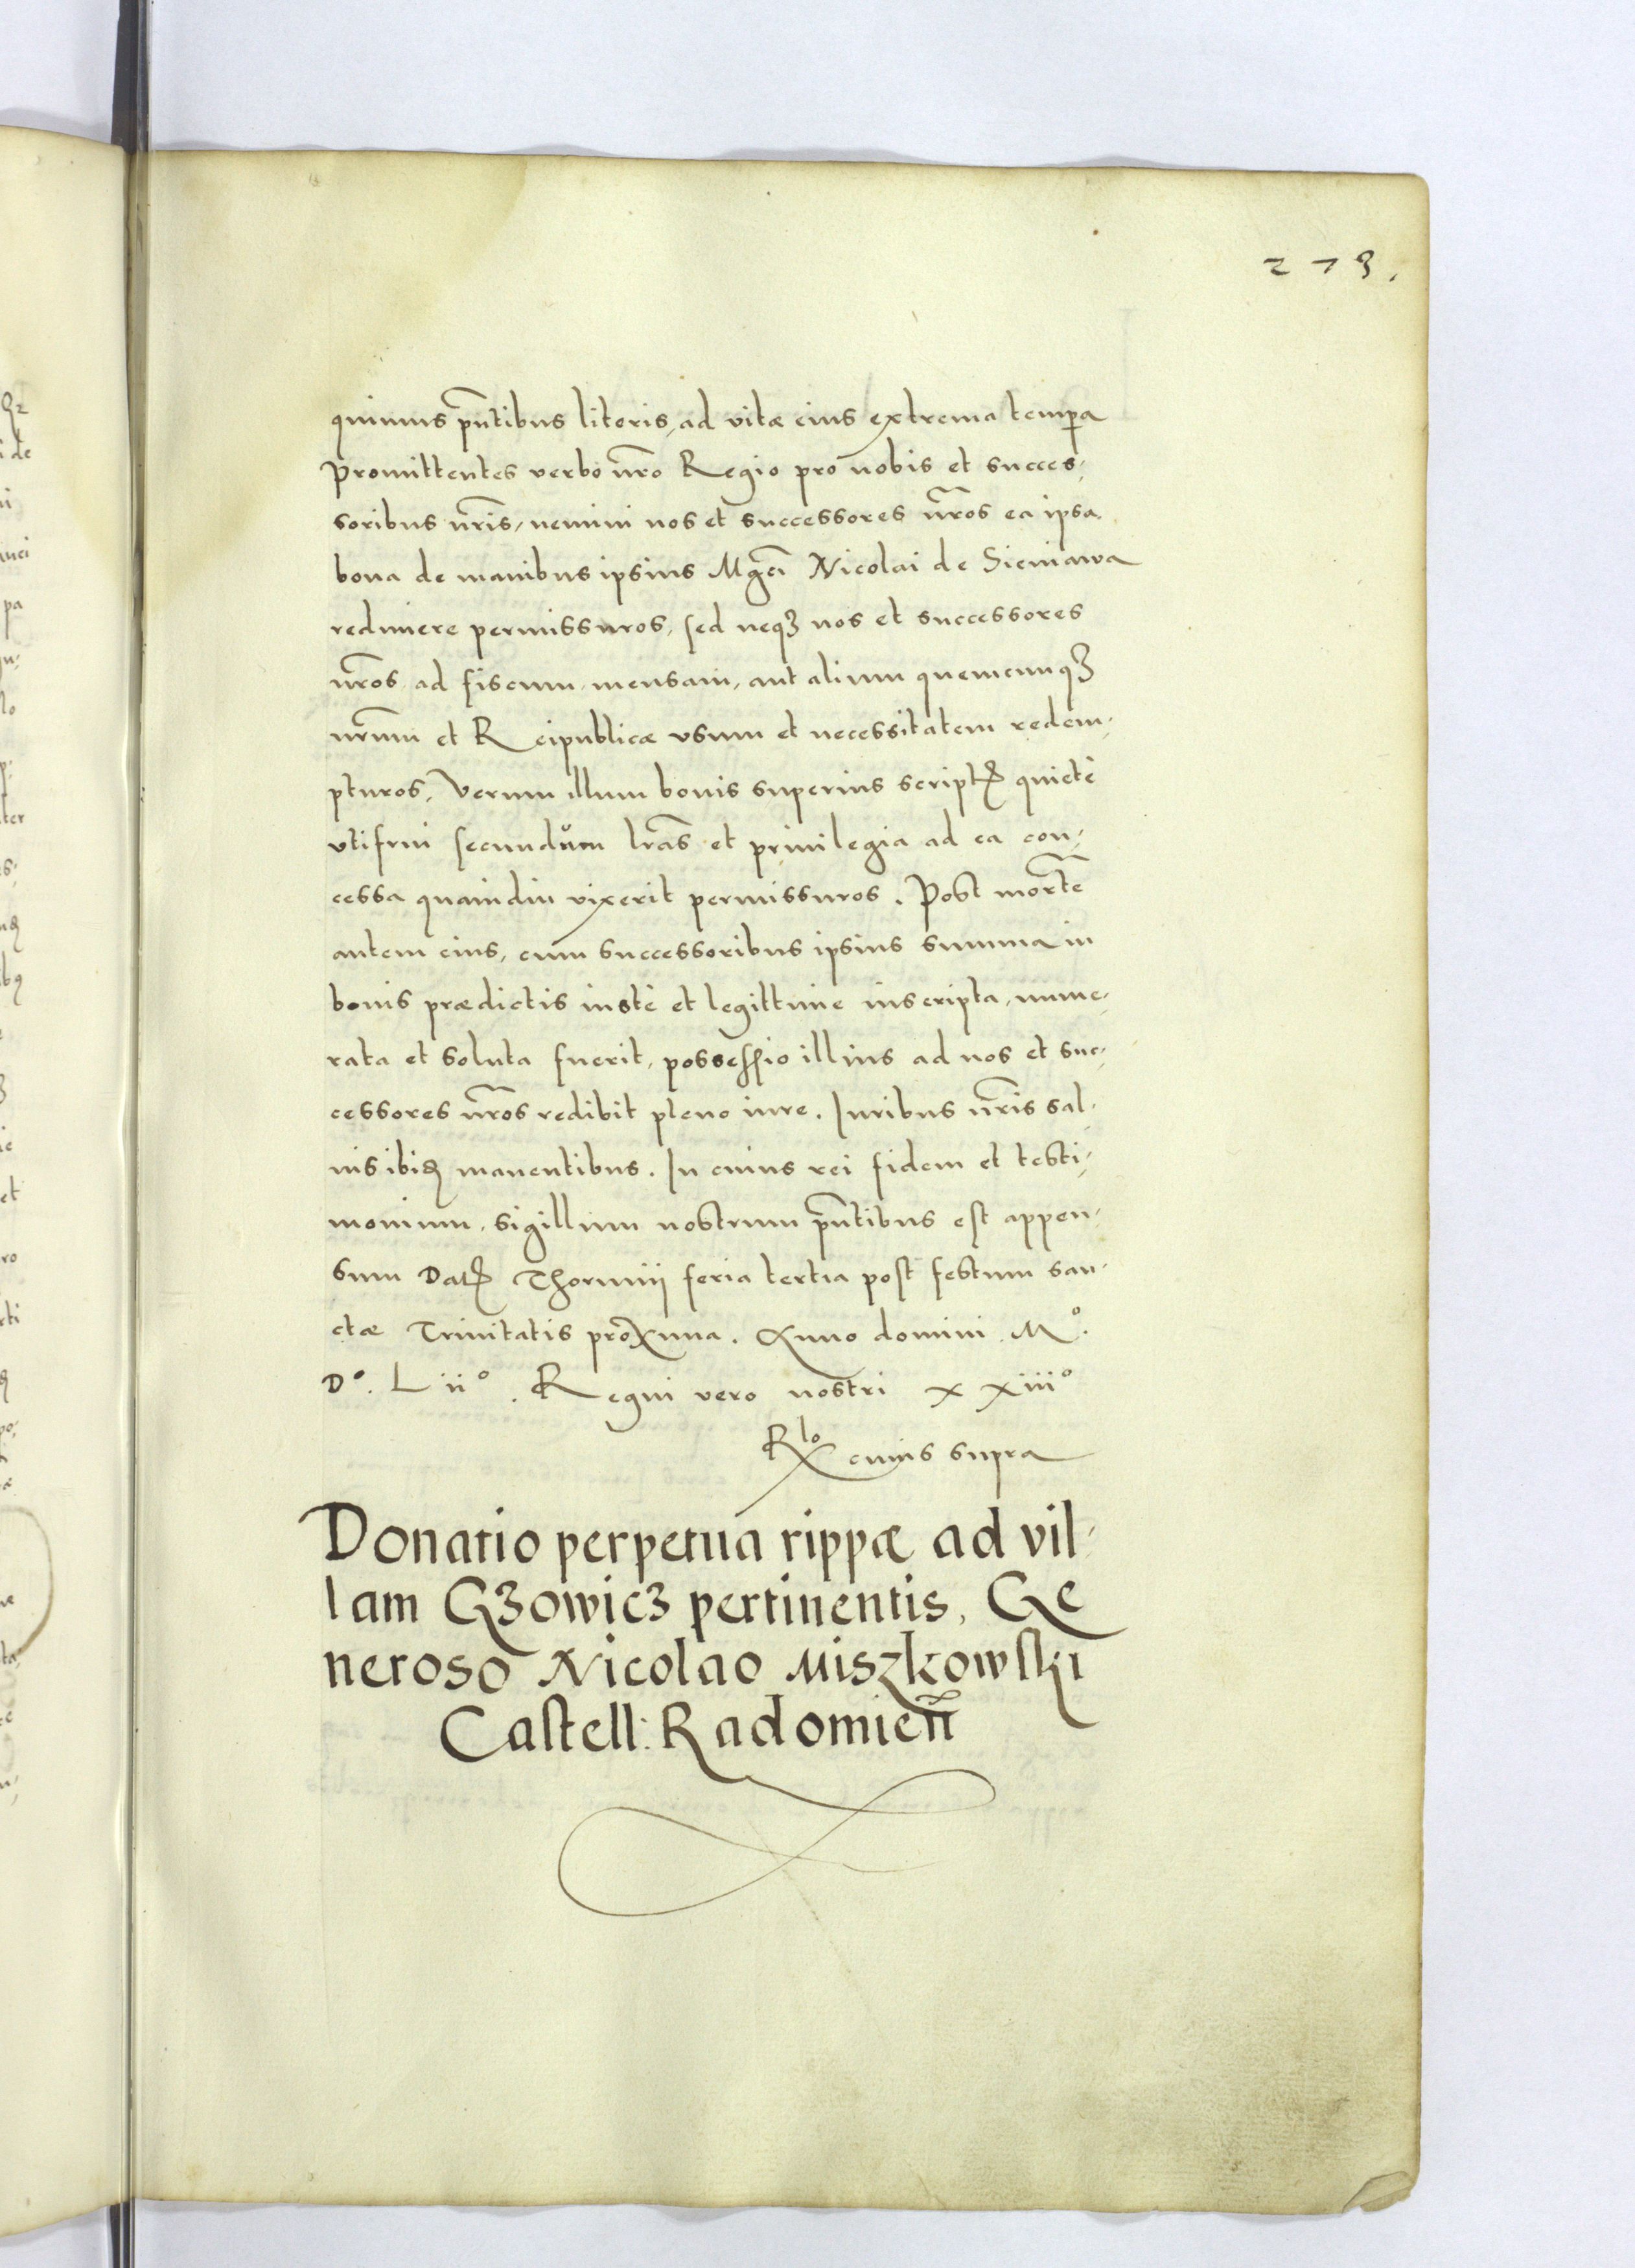 273.
quimus pñtibus literis, ad vitæ eius extrema tempa
Promittentes verbo nr̃o Regio pro nobis et succes,
soribus nr̃is, nemini nos et successores nr̃os ea ipsa
bona de manibus ipsius Mgci Nicolai de Sieniawa
redimere permissuros, sed neqȝ nos et successores
nr̃os ad fiscum, mensam, aut alium quemcunqȝ
nr̃um et Reipublicæ vsum et necessitatem redem,
pturos, Verum illum bonis superius scriptꝭ quietè
vtifrui secundům lr̃as et priuilegia ad ea con,
cessa quamdiu vixerit permissuros. Post mortẽ
autem eius, cum successoribus ipsius summa in
bonis prædictis iustè et legittime inscripta, nume,
rata et soluta fuerit, possessio illius ad nos et suc,
cessores nr̃os redibit pleno iure. Iuribus nr̃is sal,
uis ibiꝗ manentibus. In cuius rei fidem et testi,
monium, sigillum nostrum pñtibus est appen,
sum Datꝭ Thorunij feria tertia post festum san,
ctæ Trinitatis proxima. Anno domini Mº.
Dº. Liiº. Regni vero nostri xxiiiº
Rlo cuius supra
Donatio perpetua rippæ ad vil,
lam Gȝowicȝ pertinentis, Ge
neroso Nicolao Miszkowski
Castell: Radomieñ